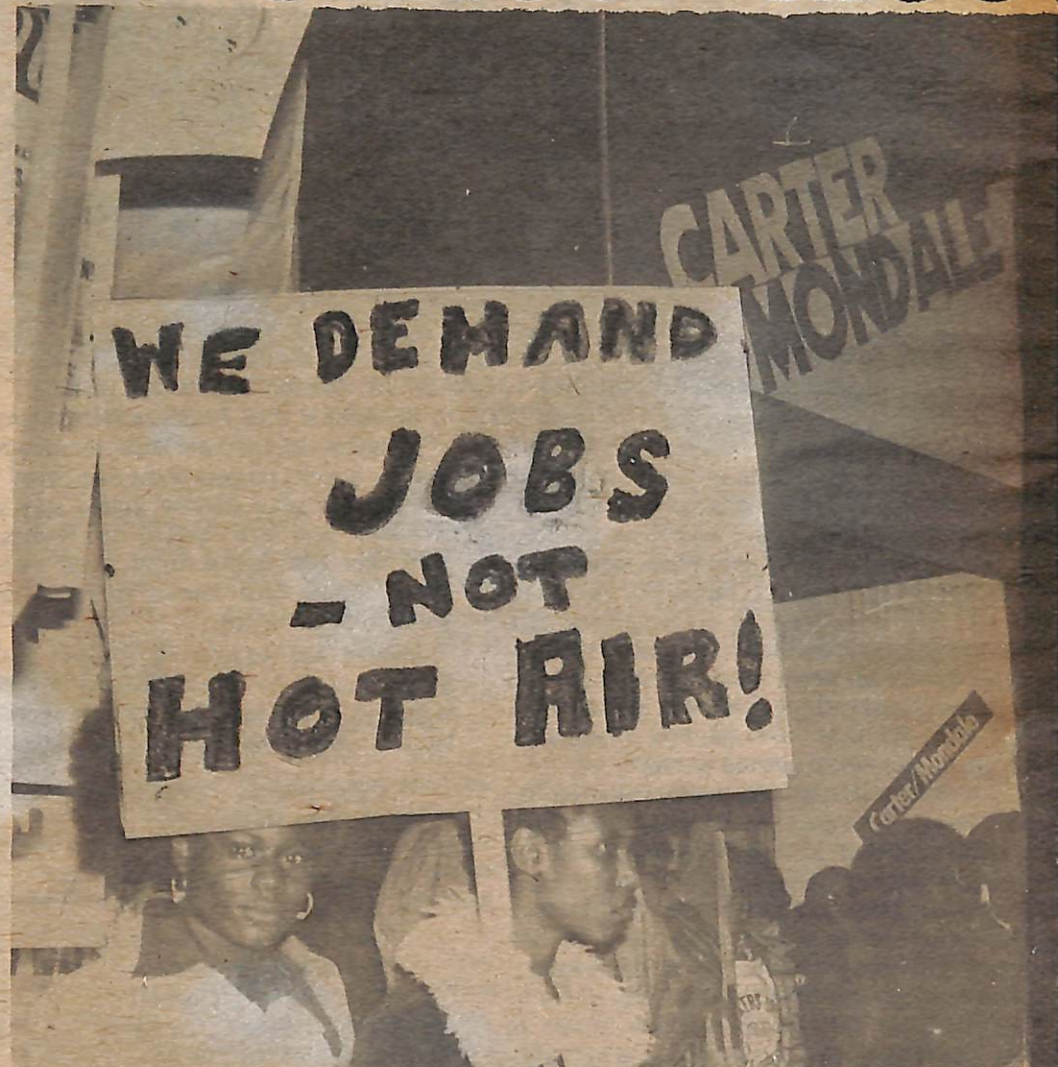 CARTER
MONDALE
WE DEMAND
JOBS
- NOT
HOT AIR!
Carter/Mondale